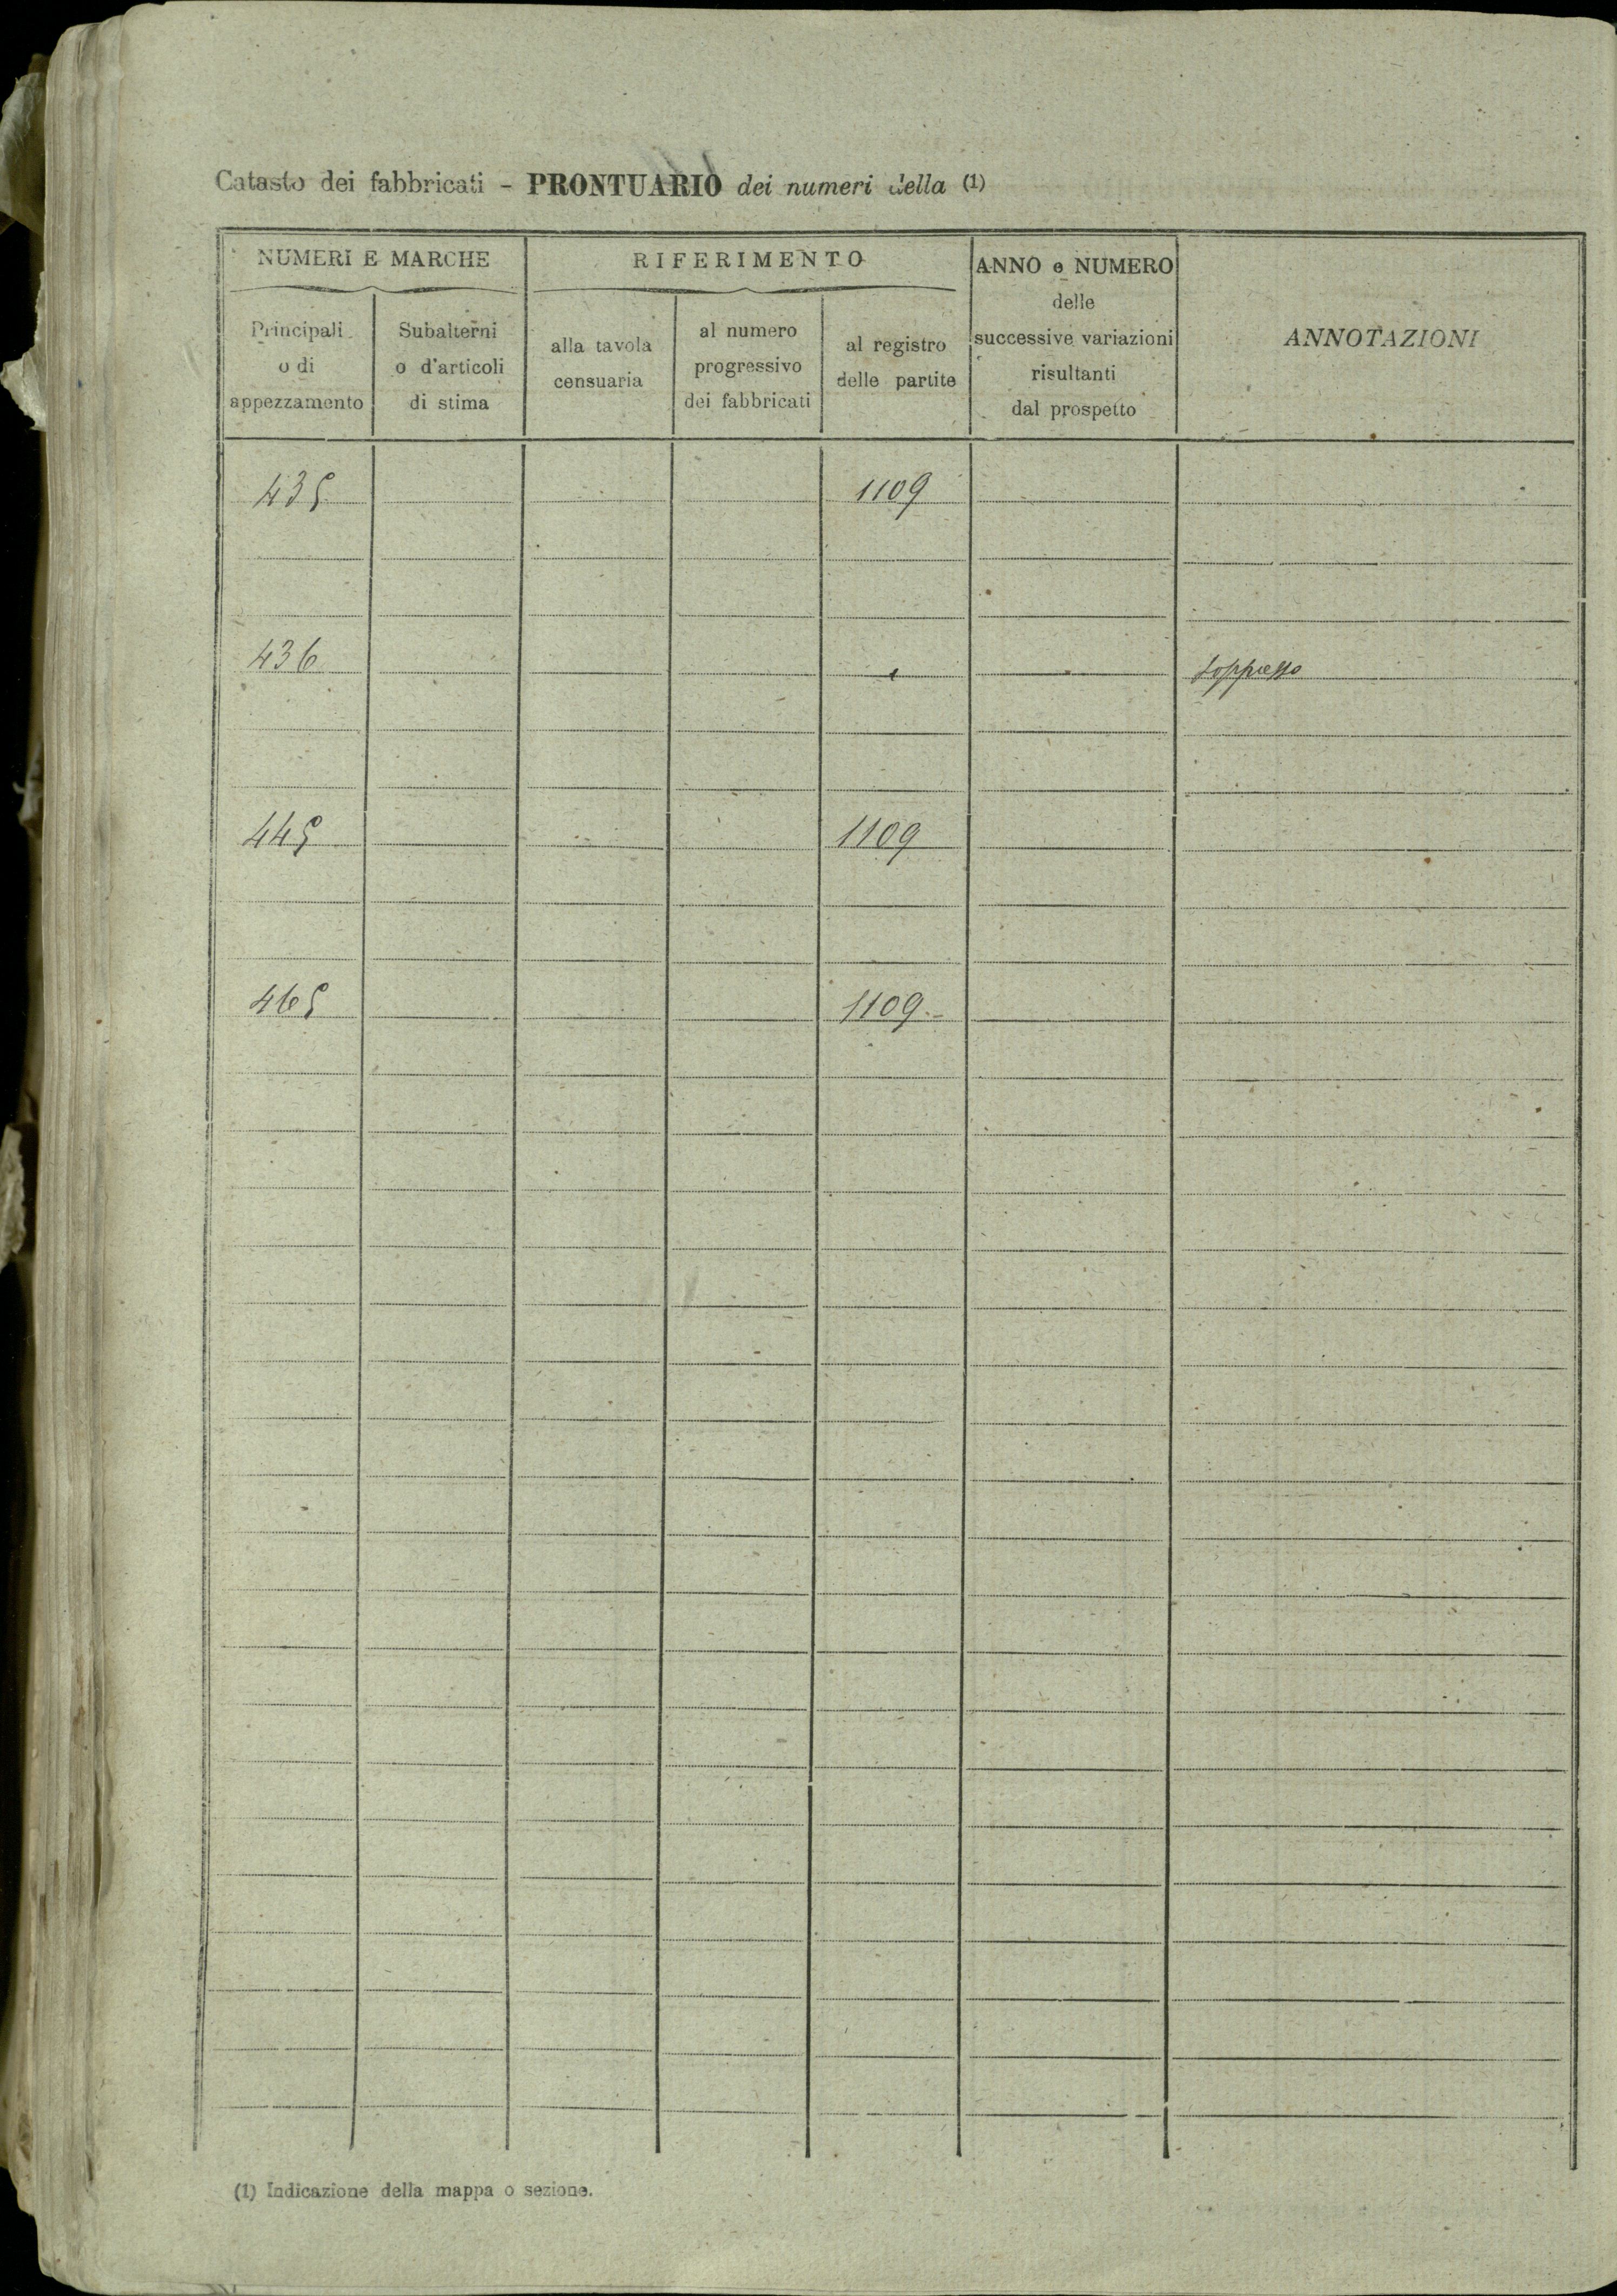 Catasto dei fabbricati - PRONTUARIO dei numeri della (1)
NUMERI E MARCHE
RIFERIMENTO
ANNO e NUMERO
delle
successive variazioni
risultanti
dal prospetto
ANNOTAZIONI
Principali
o di
appezzamento
Subalterni
o d'articoli
di stima
alla tavola
censuaria
al numero
progressivo
dei fabbricati
al registro
delle partite
435 1109
436 soppresso
445 1109
465 1109
(1) Indicazione della mappa o sezione.